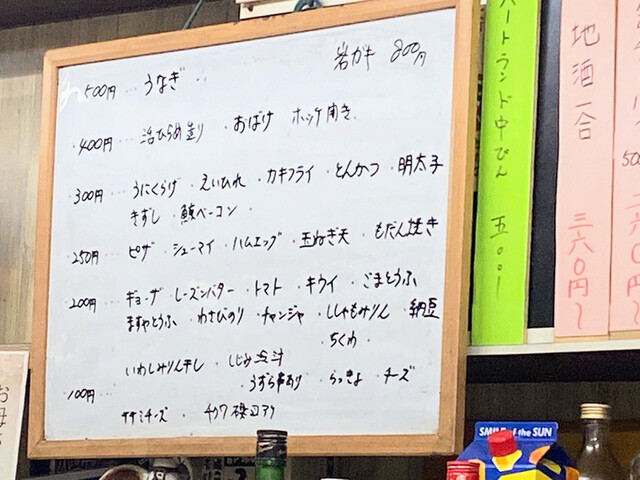 岩ガキ 800円
500円 … うなぎ
400円 … 活ひらめ造り ・おばけ ホッケ開き
300円 … うにくらげ ・えいひれ ・カキフライ ・とんかつ ・明太子
きずし ・鯨ベーコン
250円 … ピザ ・シューマイ ・ハムエッグ ・玉ねぎ天 ・もだん焼き
200円 … ギョーザ ・レーズンバター ・トマト ・キウイ ・ごまとうふ
ますやとうふ ・わさびのり ・チャンジャ ・ししゃもみりん ・納豆
ちくわ
いわしみりん干し ・しじみ
100円 ・うずら串あり ・らっきょ ・チーズ
ササミチーズ ・チクワ磯辺アゲ
ハートランド中びん 五〇〇
地酒一合 三六〇円〜
円〜
SMILE of the SUN